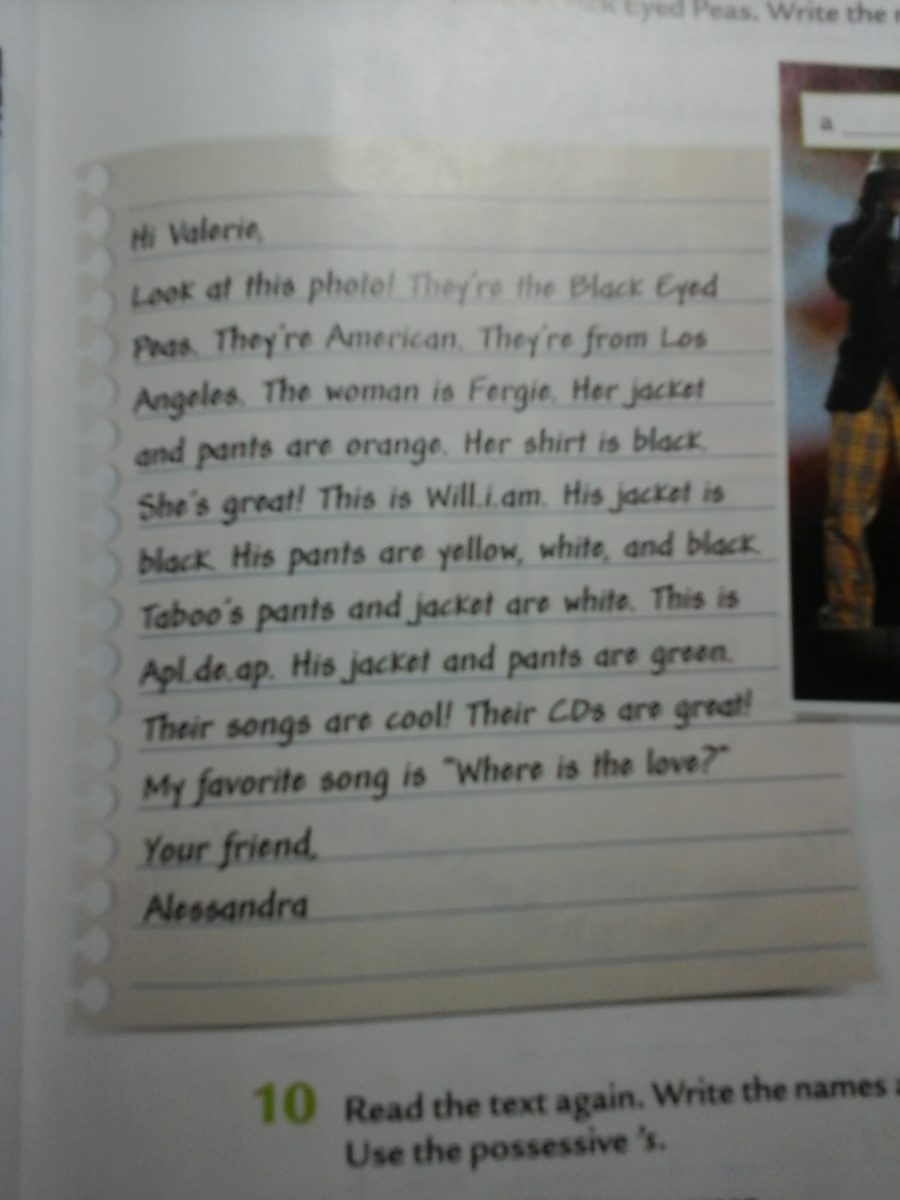 Eyed Peas. Write the
a
Hi Valerie,
Look at this photo! They're the Black Eyed
Peas. They're American. They're from Los
Angeles. The woman is Fergie. Her jacket
and pants are orange. Her shirt is black.
She's great! This is Will.i.am. His jacket is
black. His pants are yellow, white, and black.
Taboo's pants and jacket are white. This is
Apl.de.ap. His jacket and pants are green.
Their songs are cool! Their CDs are great!
My favorite song is "Where is the love?"
Your friend,
Alessandra
10 Read the text again. Write the names
Use the possessive 's.